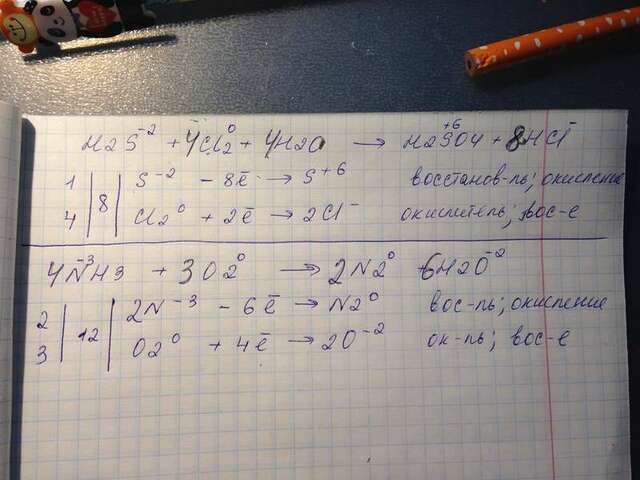 H2S⁻² + 4Cl2⁰ + 4H2O → H2S⁺⁶O4 + 8HCl⁻
1 | 8 | S⁻² - 8ē → S⁺⁶ восстанов-ль; окисление
4 | | Cl2⁰ + 2ē → 2Cl⁻ окислитель; вос-е
4N⁻³H3 + 3O2⁰ → 2N2⁰ + 6H2O⁻²
2 | 12 | 2N⁻³ - 6ē → N2⁰ вос-ль; окисление
3 | | O2⁰ + 4ē → 2O⁻² ок-ль; вос-е